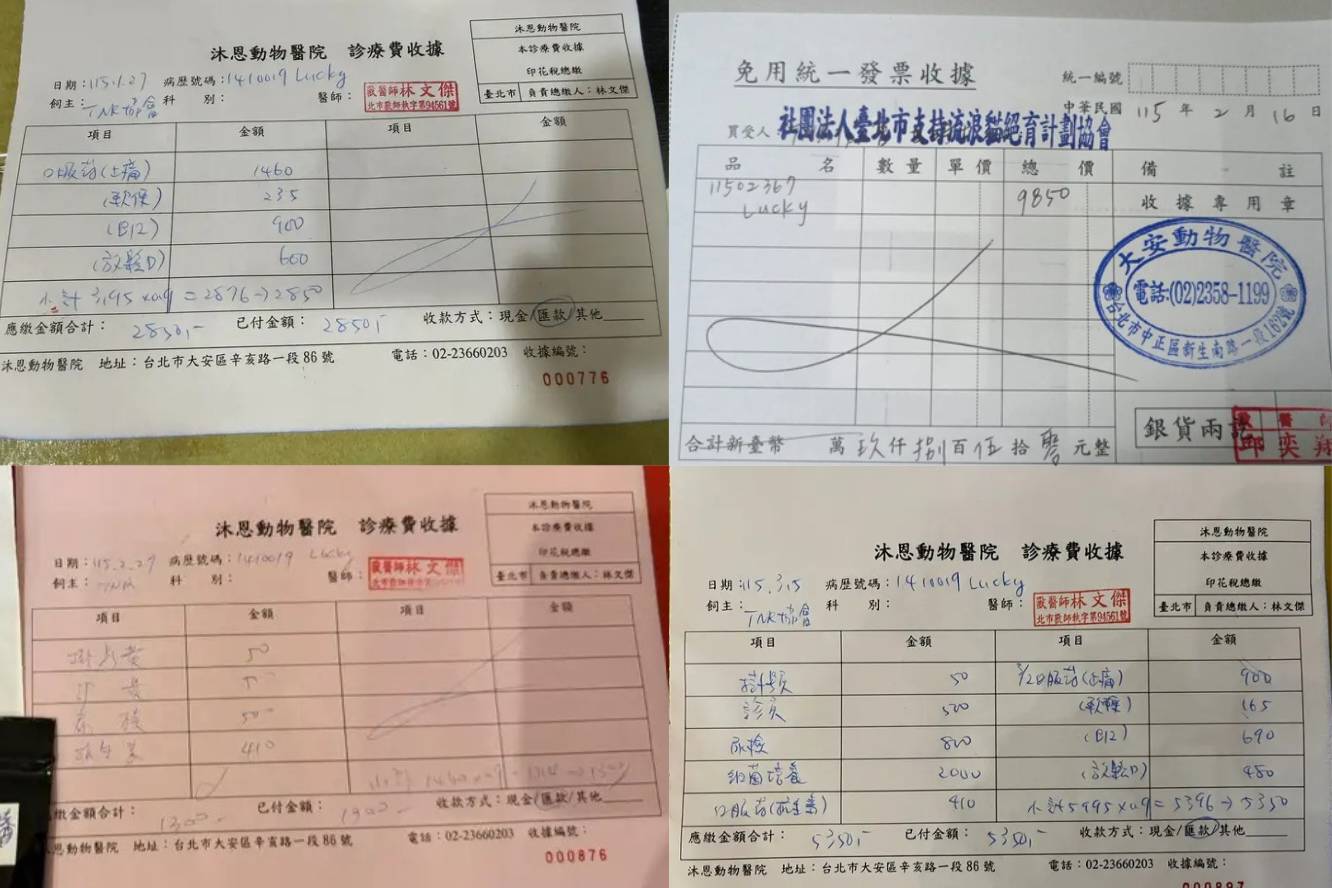 沐恩動物醫院 診療費收據
沐恩動物醫院
本診療費收據
印花稅總繳
臺北市 負責總繳人：林文傑
日期：115.1.27 病歷號碼：1410019 Lucky
飼主：TNR協會 科 別： 醫師：
獸醫師林文傑
北市獸師執字第94561號
項目 金額 項目 金額
口服葯(止痛) 1460
(軟便) 235
(B12) 900
(放鬆D) 600
小計3,195×0.9=2876→2850
應繳金額合計：2850,- 已付金額：2850,- 收款方式：現金/匯款/其他
沐恩動物醫院 地址：台北市大安區辛亥路一段86號 電話：02-23660203 收據編號：
000776
免用統一發票收據
統一編號
中華民國 115 年 2 月 16 日
買受人 社團法人臺北市支持流浪貓絕育計劃協會
品名 數量 單價 總價 備註
11502367 9850 收據專用章
Lucky
大安動物醫院
電話:(02)2358-1199
台北市中正區新生南路一段162號
銀貨兩訖
獸醫師
邱奕翔
合計新臺幣 萬 玖仟捌百伍拾零元整
沐恩動物醫院 診療費收據
沐恩動物醫院
本診療費收據
印花稅總繳
臺北市 負責總繳人：林文傑
日期：115.2.27 病歷號碼：1410019 Lucky
飼主：TNR 科 別： 醫師：
獸醫師林文傑
項目 金額 項目 金額
掛號費 50
500
尿檢 500
410
小計 1460×0.9=1314→1300
繳金額合計：1300- 已付金額：1300- 收款方式：現金/匯款/其他
恩動物醫院 地址：台北市大安區辛亥路一段86號 電話：02-23660203 收據編號：
000876
沐恩動物醫院 診療費收據
沐恩動物醫院
本診療費收據
印花稅總繳
臺北市 負責總繳人：林文傑
日期：115.3.5 病歷號碼：1410019 Lucky
飼主：TNR協會 科 別： 醫師：
獸醫師林文傑
北市獸師執字第94561號
項目 金額 項目 金額
掛號 50 口服葯(止痛) 900
診費 500 (軟便) 165
尿檢 800 (B12) 690
細菌培養 2000 (放鬆D) 480
口服葯(抗生素) 410 小計5995×0.9=5396→5350
應繳金額合計：5350,- 已付金額：5350,- 收款方式：現金/匯款/其他
沐恩動物醫院 地址：台北市大安區辛亥路一段86號 電話：02-23660203 收據編號：
000897